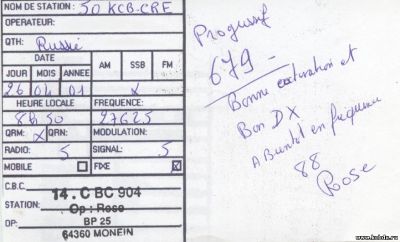 NOM DE STATION: 50 KCB-CRE
OPERATEUR:
QTH: Russie
DATE
JOUR MOIS ANNEE AM SSB FM
26 04 01 X
HEURE LOCALE FREQUENCE:
8H50 27625
QRM: X QRN: MODULATION:
RADIO: 5 SIGNAL: 5
MOBILE FIXE X
C.B.C. 14. C BC 904
STATION: Op : Rose
OP: BP 25
64360 MONEIN
Progressif
679 -
Bonne continuation et
Bon DX
A Bientot en fréquence
88
Rose